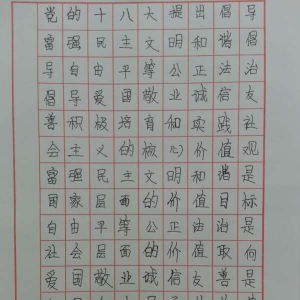 党的十八大提出倡导
富强民主文明和谐倡
导自由平等公正法治
倡导爱国敬业诚信友
善积极培育和实践社
会主义的核心价值观
富强民主文明和谐是
国家层面的价值目标
自由平等公正法治是
社会层面的价值取向
爱国敬业诚信友善是